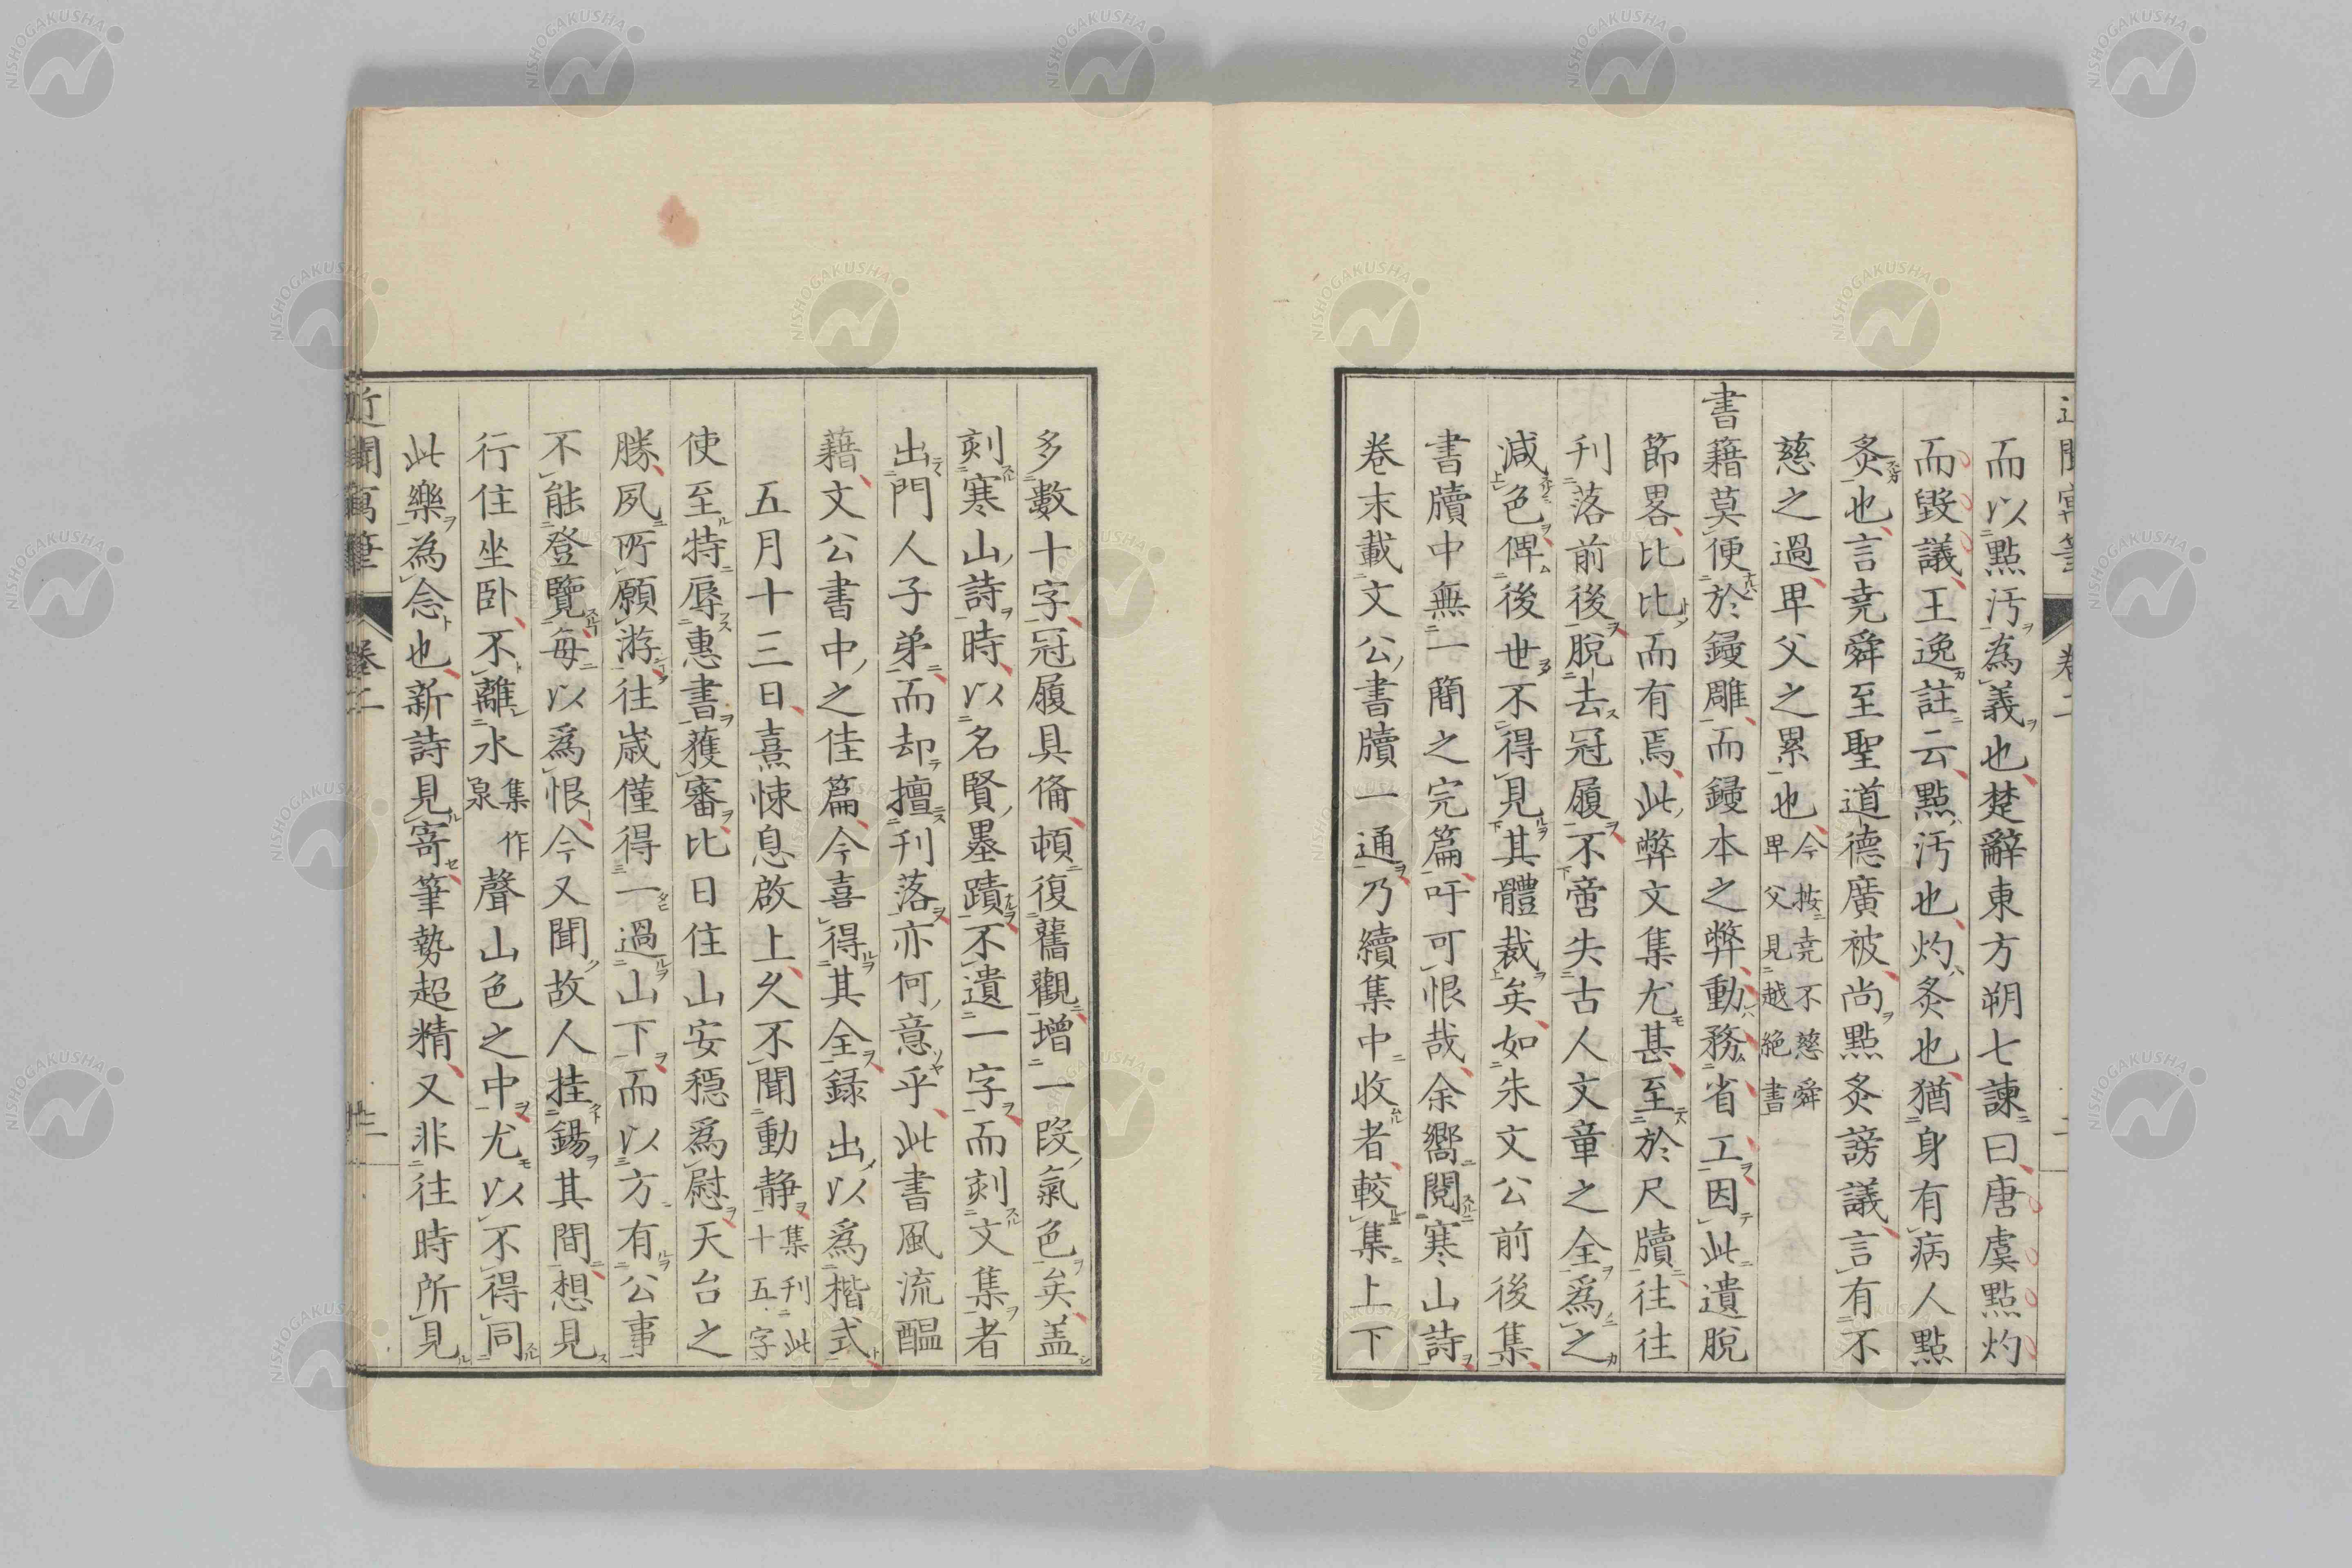 而以點汚為義也楚辭東方朔七諫曰唐虞點灼
而毀議王逸註云點汚也灼炙也猶身有病人點
炙也言堯舜至聖道德廣被尚點炙謗議言有不
慈之過卑父之累也今按堯不慈舜卑父見越絶書
書籍莫便於鏝雕而鏝本之弊動務省工因此遺脫
節畧比比而有焉此弊文集尤甚至於尺牘往往
刊落前後脫去冠履不啻失古人文章之全為之
減色俾後世不得見其體裁矣如朱文公前後集
書牘中無一簡之完篇吁可恨哉余嚮閱寒山詩
卷末載文公書牘一通乃續集中收者較集上下
多數十字冠履具偹頓復舊觀增一段氣色矣盖
刻寒山詩時以名賢墨蹟不遺一字而刻文集者
出門人子弟而却擅刊落亦何意乎此書風流醞
藉文公書中之佳篇今喜得其全録出以為楷式
五月十三日熹悚息啟上久不聞動静集刊此十五字
使至特辱惠書蒦審比日住山安穩為慰天台之
勝夙所願游往歲僅得一過山下而以方有公事
不能登覽每以為恨今又聞故人挂錫其間想見
行住坐卧不離水集作泉聲山色之中尤以不得同
此樂為念也新詩見寄筆勢超精又非往時所見
近聞寓筆 卷二